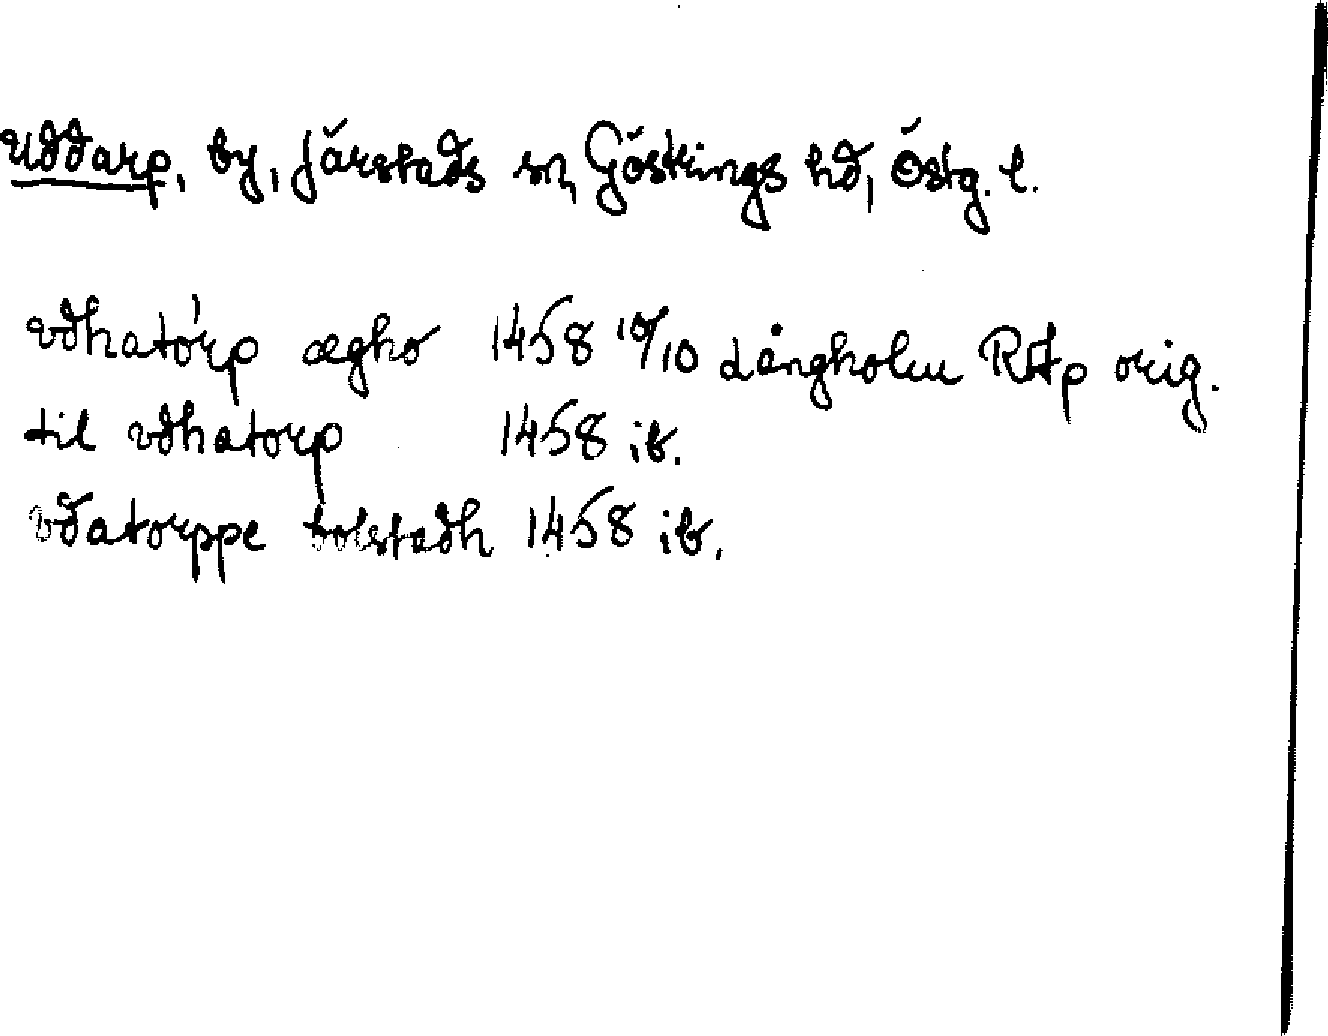 Uddarp, by, Järstads sn, Göstrings hd, Östg. l.
vdhatórp ægho 1458 10/10 Långholm RAp orig.
til vdhatorp 1458 ib.
vdatorppe bolstadh 1458 ib.